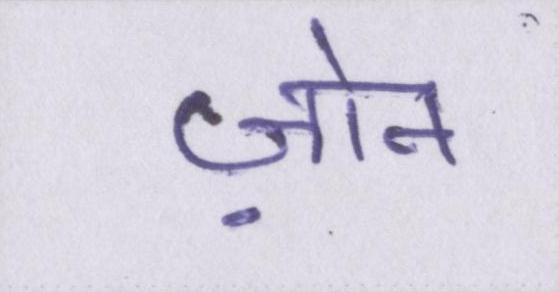 ज़ोन